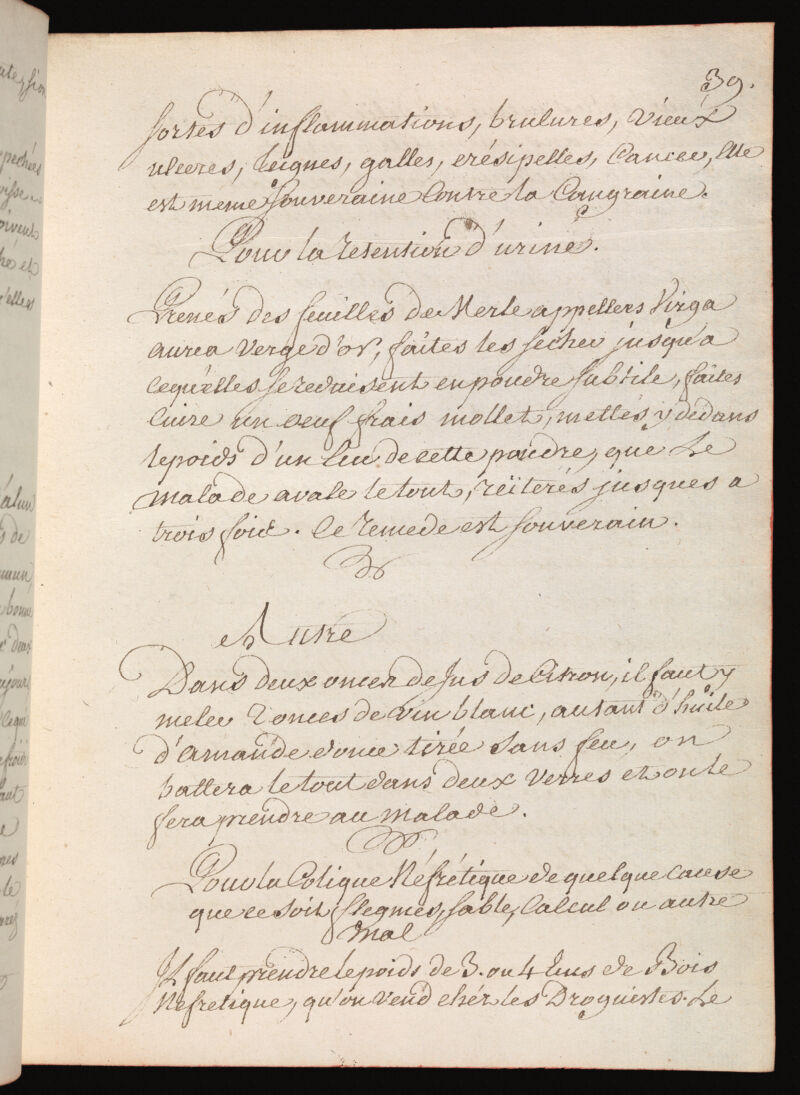 39.
sortes d'inflammations, brulures, vieux
ulceres, teignes, galles, erésipelles, Cancer, elle
est meme souveraine Contre la Cangraine.
Pour la retention d'urine.
Prenés des feuilles de Merle appellers Virga
aurea verge d'or, faites les secher jusqu'a
cequ'elles se reduisent en poudre subtile, faites
Cuire un oeuf frais mollet, mettés y dedans
le poids d'un Ecu de cette poudre, que Le
malade avale le tout, reïterés jusques a
trois fois. Ce remede est souverain.
Autre
Dans deux onces de Jus de Citron, il faut y
meler 2 onces de vin blanc, autant d'huile
d'amande douce tirée sans feu, on
battera le tout dans deux verres et on le
fera prendre au malade.
Pour la Colique Néfrétique de quelque cause
que ce soit flegmes, sable, Calcul ou autre
mal
Il faut prendre le poids de 3. ou 4 Ecus de Bois
Nefretique, qu'on vend chéz les Droguistes. Le
ate, sion
pechées
oivent
he et
'elles
'alun
s de
mun,
bonne
deux
ujours
faut
e
le